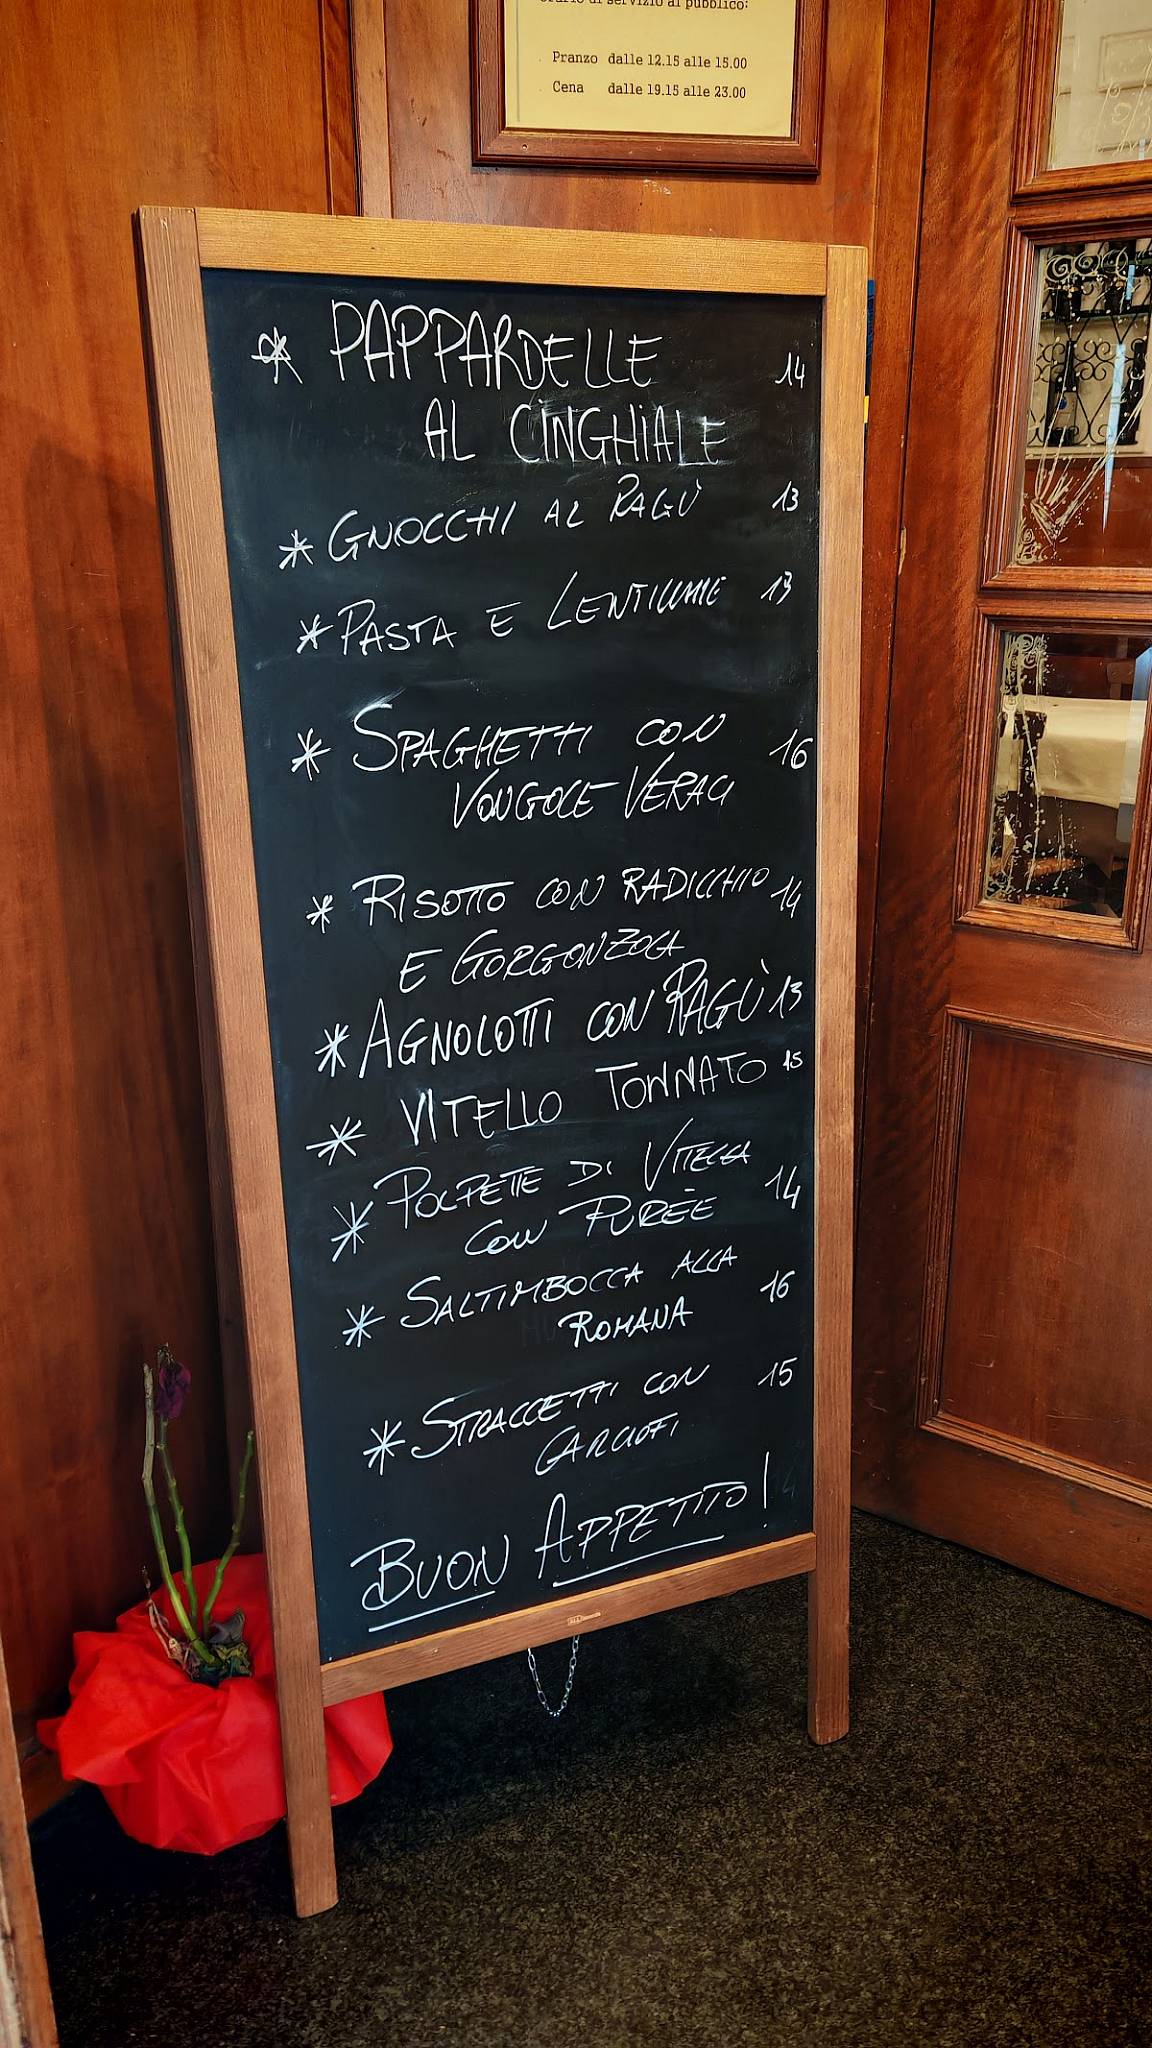 orario di servizio al pubblico:
Pranzo dalle 12.15 alle 15.00
Cena dalle 19.15 alle 23.00
* PAPPARDELLE 14
AL CINGHIALE
* GNOCCHI AL RAGÙ 13
* PASTA E LENTICCHIE 13
* SPAGHETTI CON 16
VONGOLE VERACI
* RISOTTO CON RADICCHIO 14
E GORGONZOLA
* AGNOLOTTI CON RAGÙ 13
* VITELLO TONNATO 15
* POLPETTE DI VITELLA
CON PURÈE 14
* SALTIMBOCCA ALLA 16
ROMANA
* STRACCETTI CON 15
CARCIOFI
BUON APPETITO!